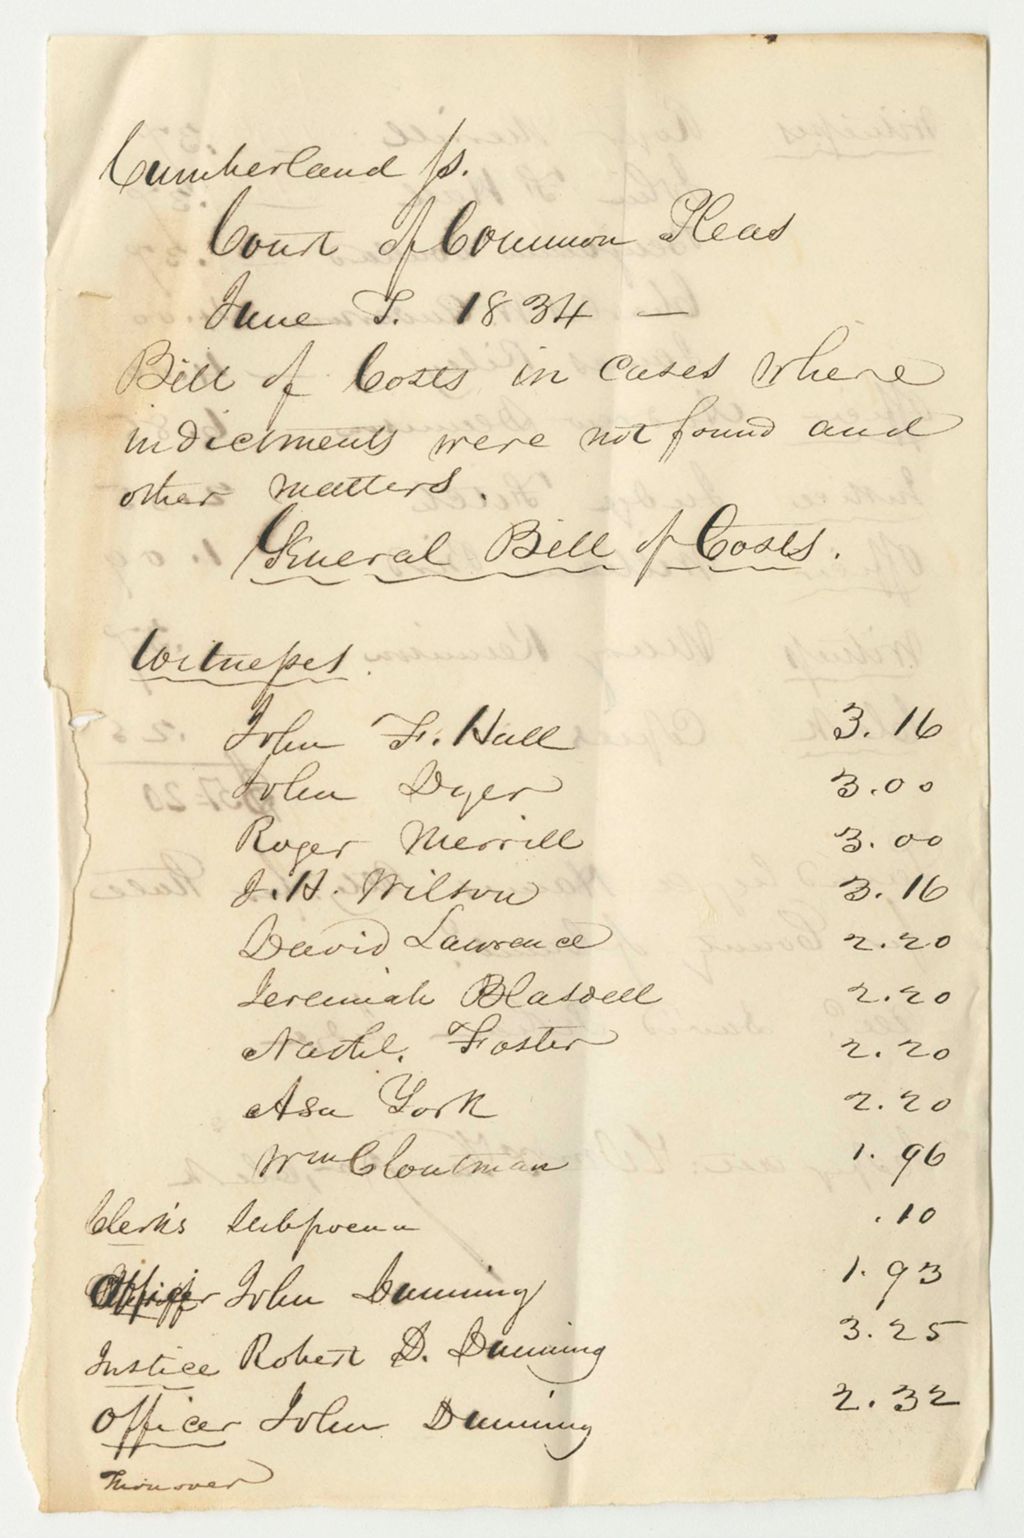 Cumberland ss.
Court of Common Pleas
June T. 1834 —
Bill of Costs in cases where
indictments were not found and
other matters.
General Bill of Costs.
Witnesses.
John F. Hall 3.16
John Dyer 3.00
Roger Merrill 3.00
J. H. Wilson 3.16
David Lawrence 2.20
Jeremiah Blasdell 2.20
Nathl. Foster 2.20
Asa York 2.20
Wm Cloutman 1.96
Clerk's Subpoena .10
Officer John Dunning 1.93
Justice Robert D. Dunning 3.25
Officer John Dunning 2.32
Turnover